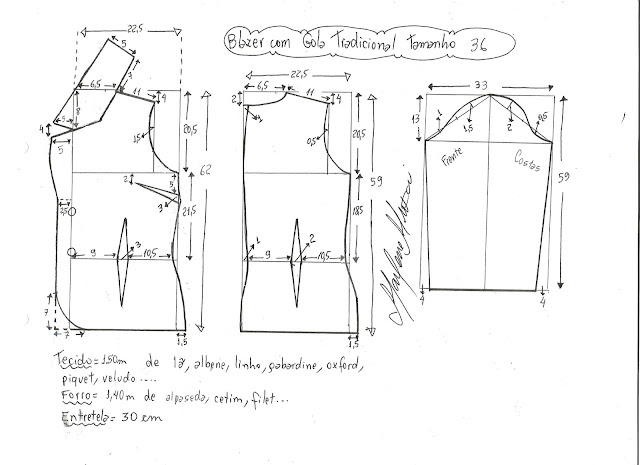 Blazer com Gola Tradicional tamanho 36
22,5
5
3
6,5
11
4
8
5
4
5
1,5
20,5
62
2
5
3
21,5
2,5
9
3
10,5
7
7
1,5
22,5
6,5
2
4
11
4
0,5
20,5
59
18,5
1
9
2
10,5
1,5
33
13
1
1,5
2
0,5
Frente
Costas
59
4
4
Marlene Mukai
Tecido = 1,50m de lã, albene, linho, gabardine, oxford,
piquet, veludo ....
Forro = 1,40m de alpaseda, cetim, filet...
Entretela = 30 cm